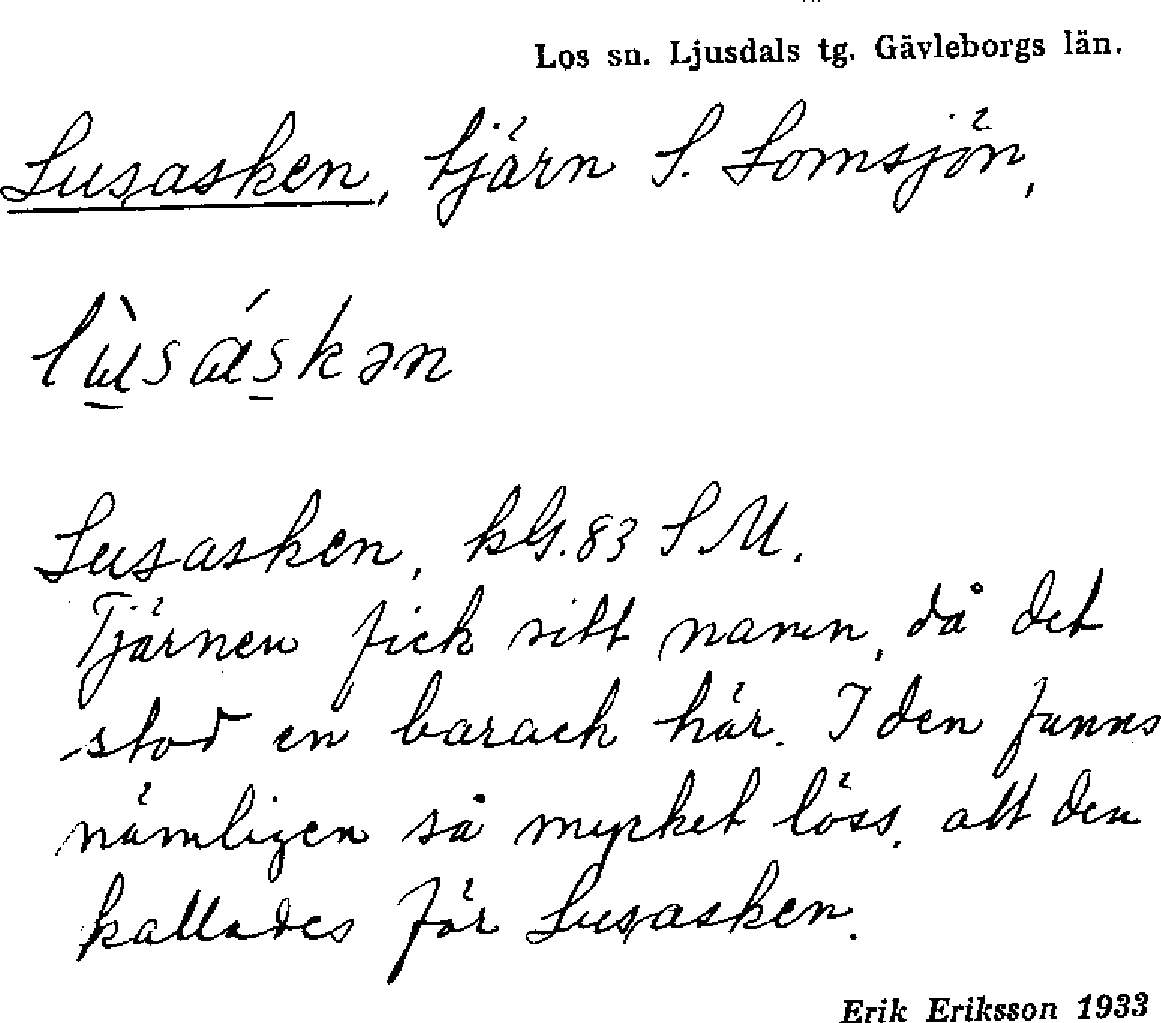 Los sn. Ljusdals tg. Gävleborgs län.
Lusasken, tjärn S. Lomsjön,
lù̲sás̲kən
Lusasken, kG. 83 S M.
Tjärnen fick sitt namn, då det
stod en barack här. I den fanns
nämligen så mycket löss, att den
kallades för Lusasken.
Erik Eriksson 1933